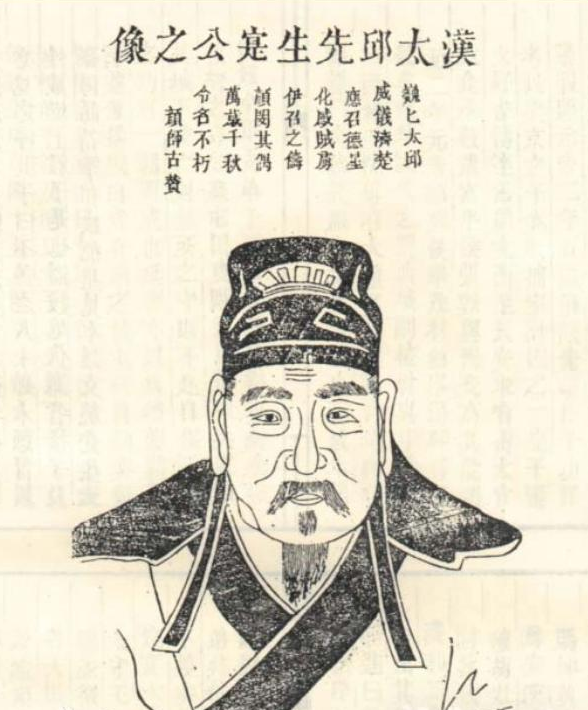 漢太邱先生寔公之像
巍匕太邱
威儀濟楚
應召德星
化感賊虜
伊召之儔
顏閔其偶
萬歲千秋
令名不朽
顏師古贊